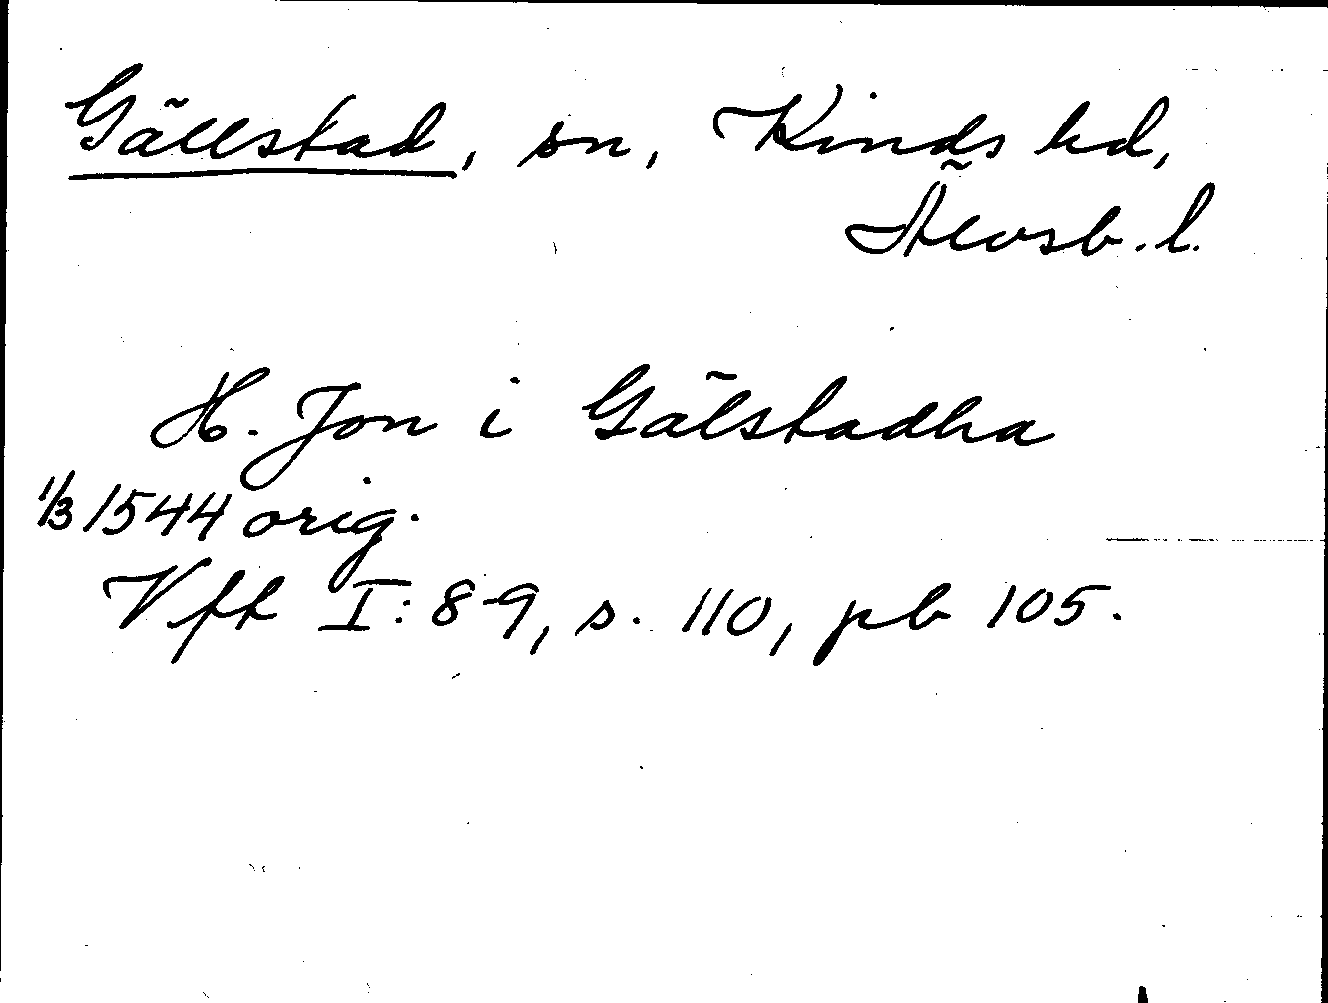 Gällstad, sn, Kinds hd,
Älvsb. l.
H. Jon i Gälstadha
1/3 1544 orig.
Vft I: 8-9, s. 110, pb 105.